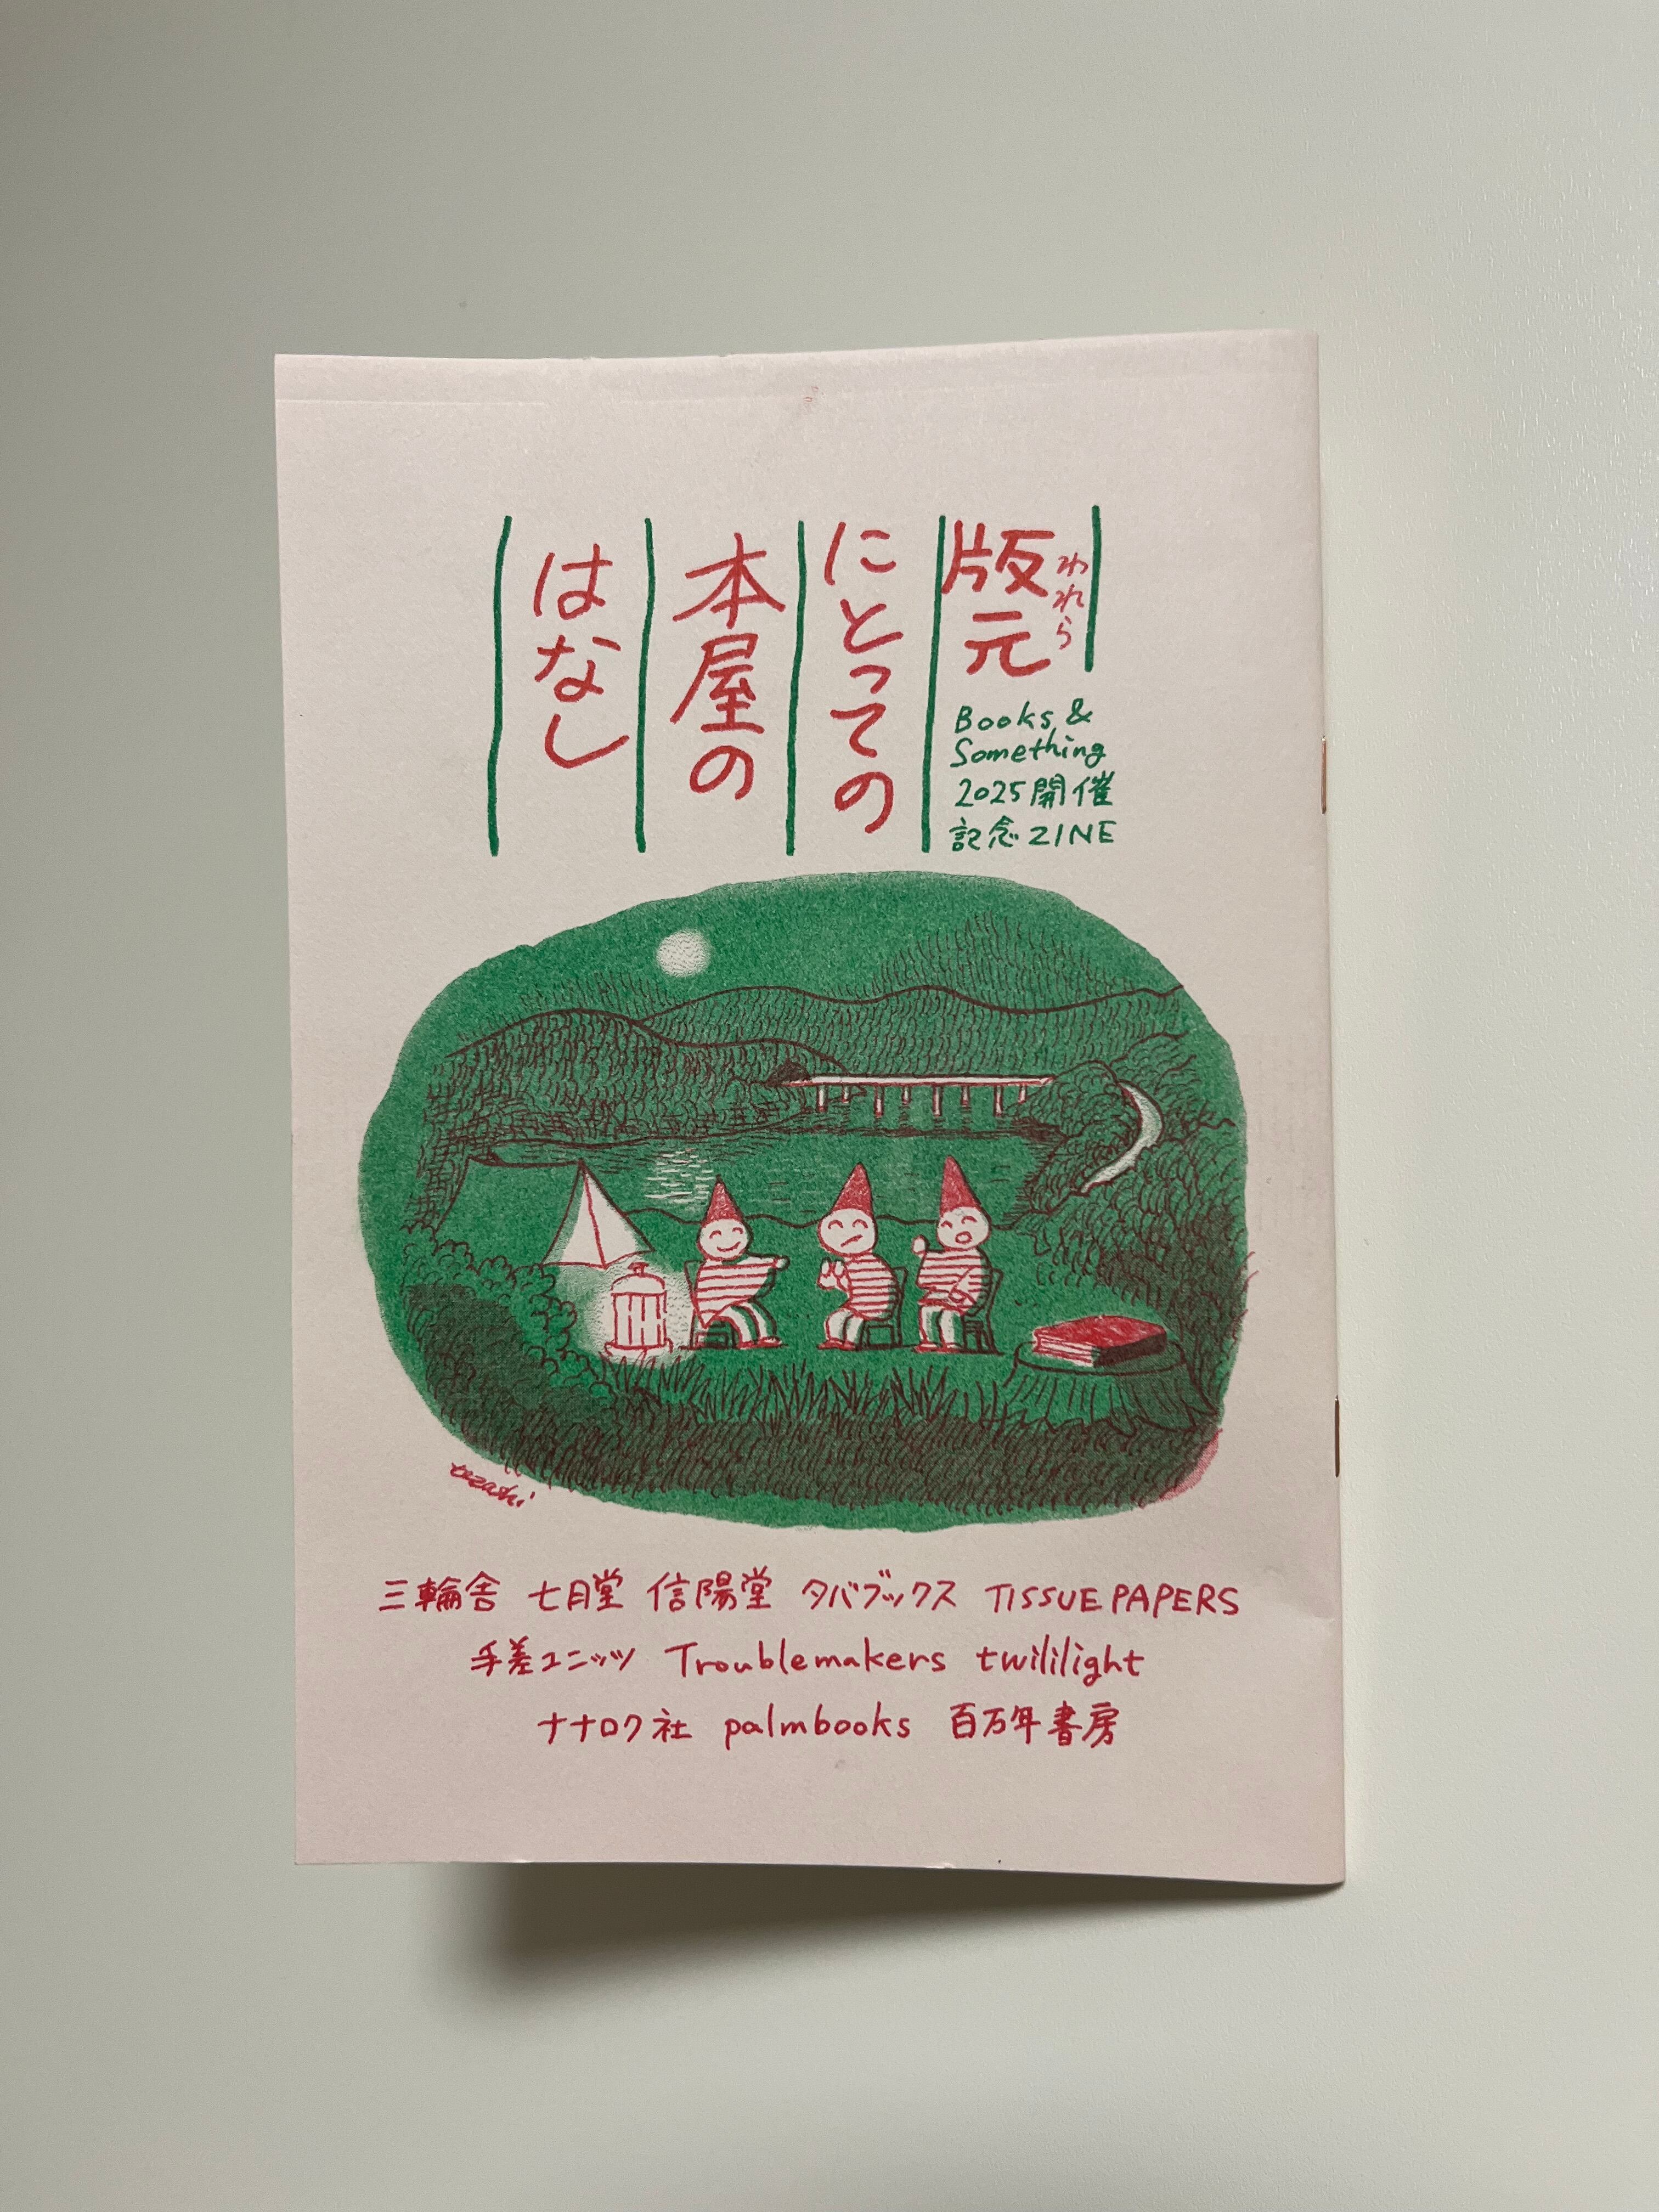 版元
われら
にとっての
本屋の
はなし
Books &
Something
2025開催
記念ZINE
tezashi
三輪舎 七月堂 信陽堂 タバブックス TISSUE PAPERS
手差ユニッツ Troublemakers twililight
ナナロク社 palmbooks 百万年書房